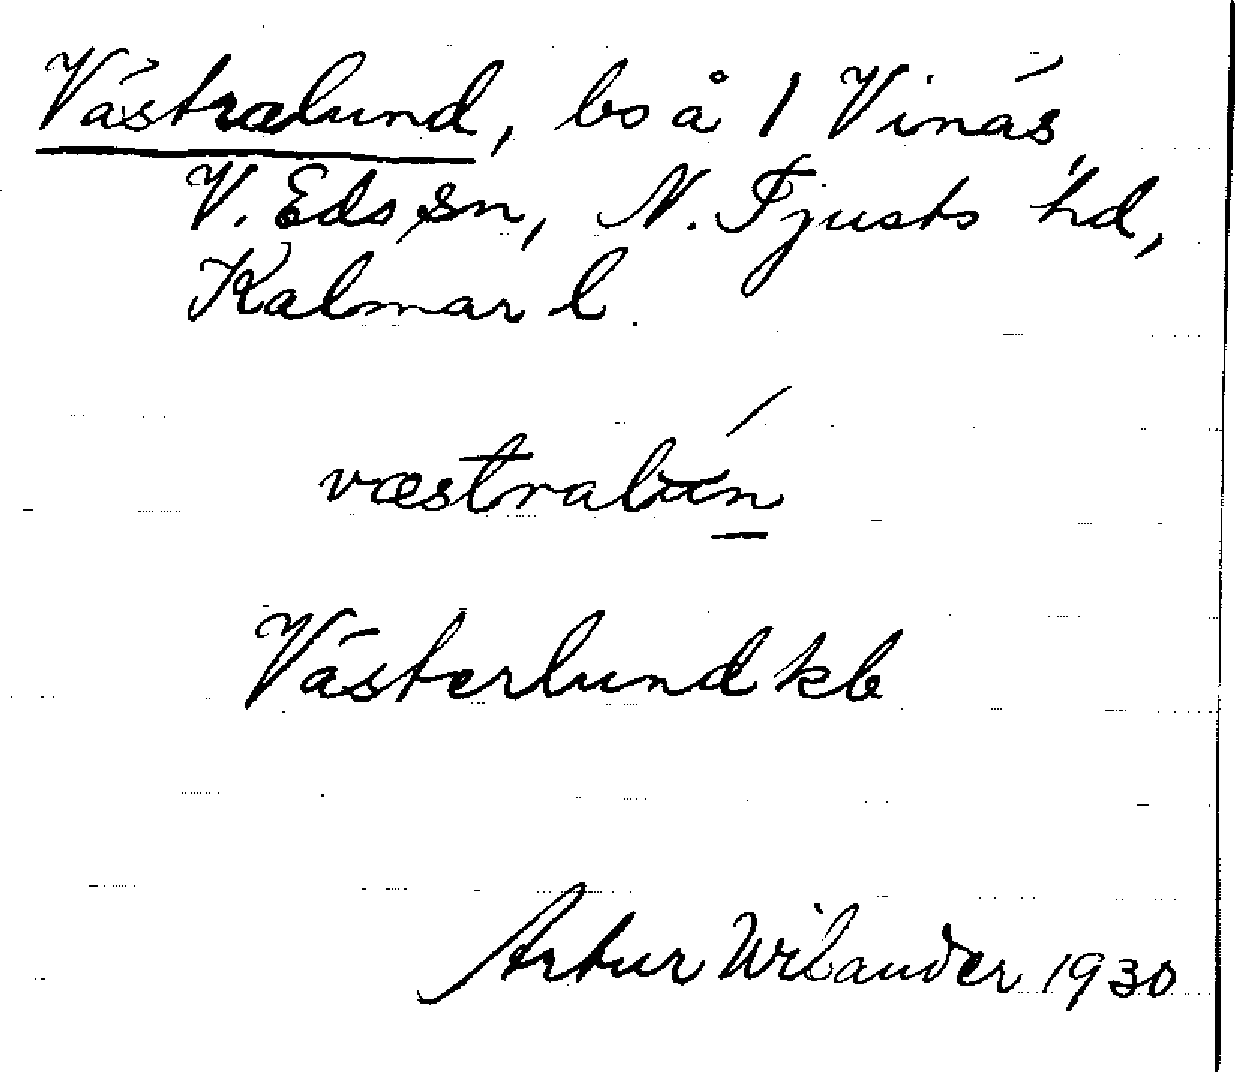 Västralund, bs å 1 Vinäs,
V. Eds sn, N. Tjusts hd,
Kalmar l.
Västerlund kb
Artur Wilander 1930